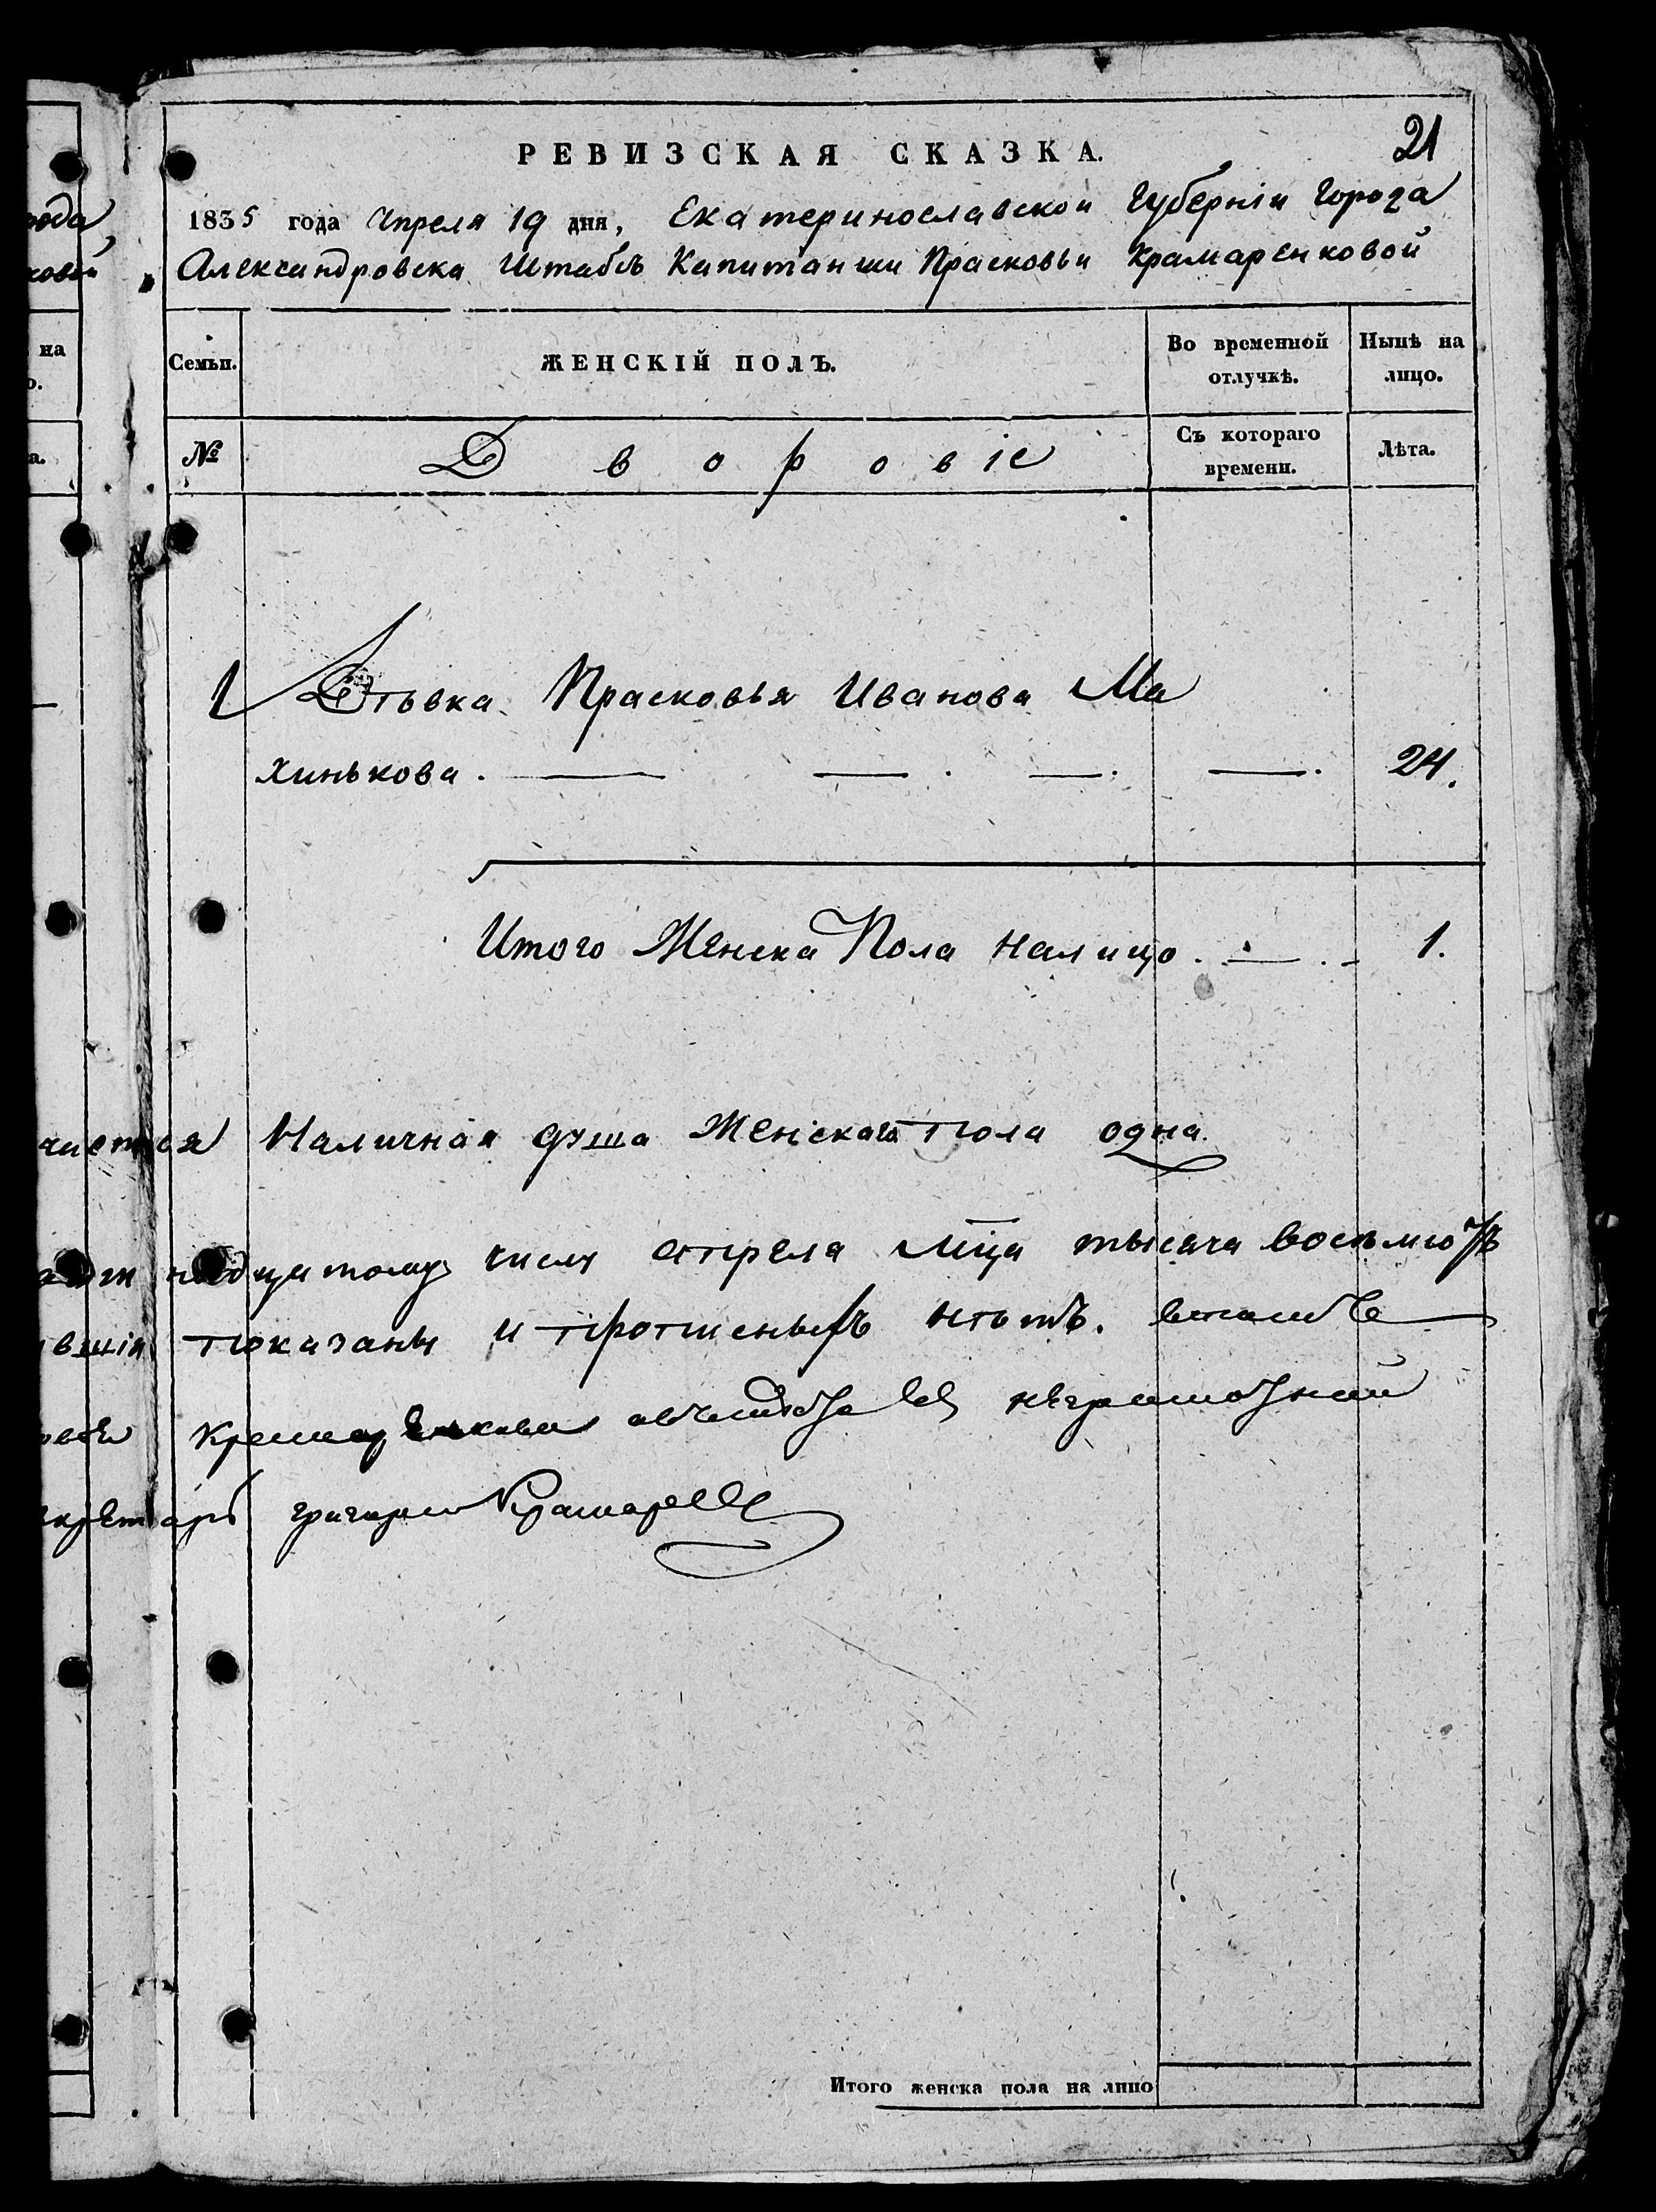 21
РЕВИЗСКАЯ СКАЗКА.
1835 года Апреля 19 дня, Екатеринославской Губерніи Города
Александровска Штабсъ Капитанши Прасковьи Крамаренковой
Семьи.
ЖЕНСКІЙ ПОЛЪ.
Во временной отлучкѣ.
Нынѣ на лицо.
№
Дворовіе
Съ котораго времени.
Лѣта.
1 Дѣвка Прасковья Иванова Ма
хинькова. 24.
Итого Женска Пола налицо. 1.
Наличная душа Женскаго пола одна
числу апреля мца тысяча восьмсотъ
вшія показаны и прописныхъ нѣтъ.
неграмотной
григорій
Итого женска пола на лицо